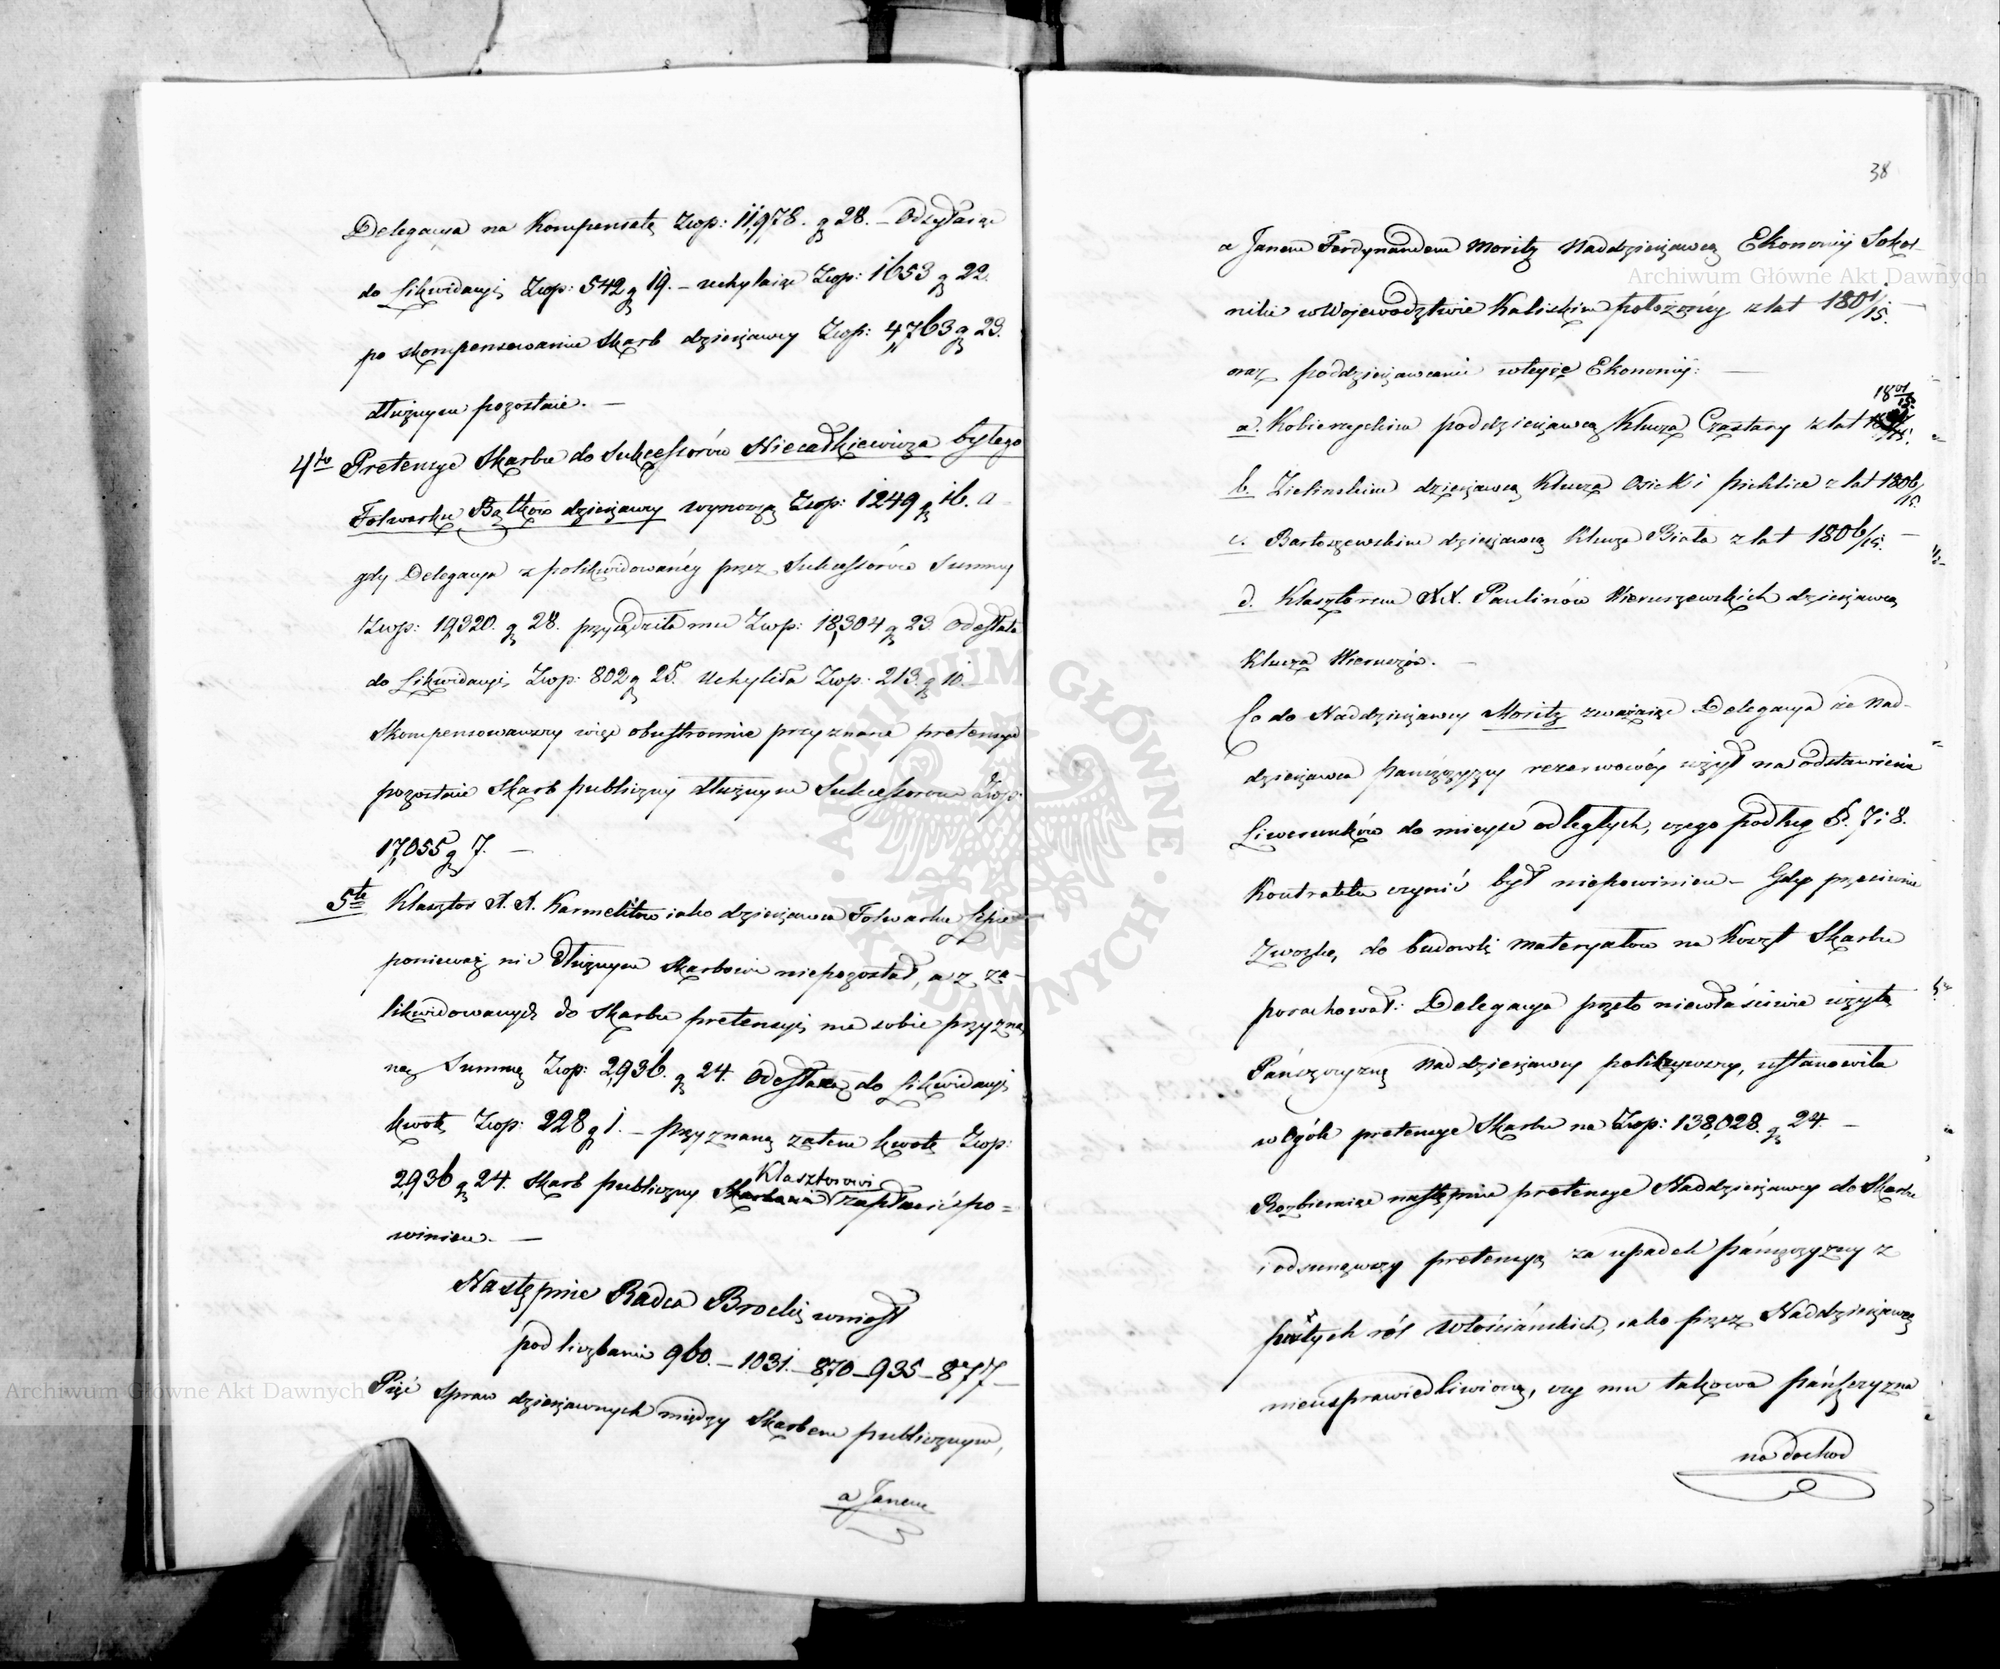 Delegacya na Kompensatę Złop: 11,978. g 28. – Odsyłaiąc
do Likwidacyi, Złop: 542 g 19. – uchylaiąc Złop: 1653 g 22.
po skompensowaniu Skarb dzierżawcy Złop: 4,763 g 23.
dłużnym pozostaie. –
4to Pretensye Skarbu do Sukcessorów Niecałkiewicza byłego
Folwarku Bątków dzierżawcy wynoszą Złop: 1249 g 16. a
gdy Delegacya z polikwidowanéy przez Sukcessorów Summy
Złop: 19,320. g 28. przysądziła mu Złop: 18,304 g 23. Odesłała
do Likwidacyi, Złop: 802 g 25. Uchyliła Złop: 213. g 10. –
Skompensowawszy więc obustronnie przyznane pretensye
pozostaie Skarb publiczny dłużnym Sukcessorom Złop:
17,055 g 7. –
5te Klasztor X. X. Karmelitów iako dzierżawca Folwarku
ponieważ nic dłużnym Skarbowi niepozostał, a z za-
likwidowanych do Skarbu pretensyi, ma sobie przyzna-
ną Summę Złop: 2,936. g 24. Odesłaną do Likwidacyi,
kwotę Złop: 228 g 1. – przyznaną zatem kwotę Złop:
2,936 g 24. Skarb publiczny Klasztorowi zapłacić po=
winien. –
Następnie Radca Brocki wniósł
pod liczbami 960. – 1031. – 870 – 935 – 877 –
Pięć Spraw dzierżawnych między Skarbem publicznym,
a Janem
38
a Janem Ferdynandem Moritz Naddzierżawcą Ekonomiy Sokol-
niki w Województwie Kaliskim położonéy z lat 1801/15. –
oraz poddzierżawcami w teyże Ekonomiy: –
a. Kobierzyckim poddzierżawcą Klucza Czastary z lat 1801/15.
b. Zielinskim dzierżawcą Klucza Osiek i Pichlice z lat 1806/15.
c. Bartoszewskim dzierżawcą Klucza Biała z lat 1806/15. –
d. Klasztorem X.X. Paulinów Wieruszewskich dzierżawcą
Klucza Wieruszów. –
Co do Naddzierżawcy Moritz zważaiąc Delegacya że Nad-
dzierżawca pańszczyzny rezerwowéy użył na odstawienie
Liwerunków do mieysc odległych, czego podług §. 7 i 8.
Kontraktu czynić był niepowinien – Gdy przeciwnie
Zwózkę, do budowli materyałów na koszt Skarbu
porachował: Delegacya przeto niewłaściwie użytą
Pańszczyznę Naddzierżawcy policzywszy, ustanowiła
w Ogóle pretensye Skarbu na Złop: 138,028. g 24. –
Rozbieraiąc następnie pretensye Naddzierżawcy do Skarbu
i odsunąwszy pretensyą za upadek pańszczyzny z
pustych ról Włościańskich, iako przez Naddzierżawcę
nieusprawiedliwioną, czy mu takowa pańszczyzna
na dochod
Archiwum Główne Akt Dawnych
Archiwum Główne Akt Dawnych
ARCHIWUM GŁÓWNE AKT DAWNYCH